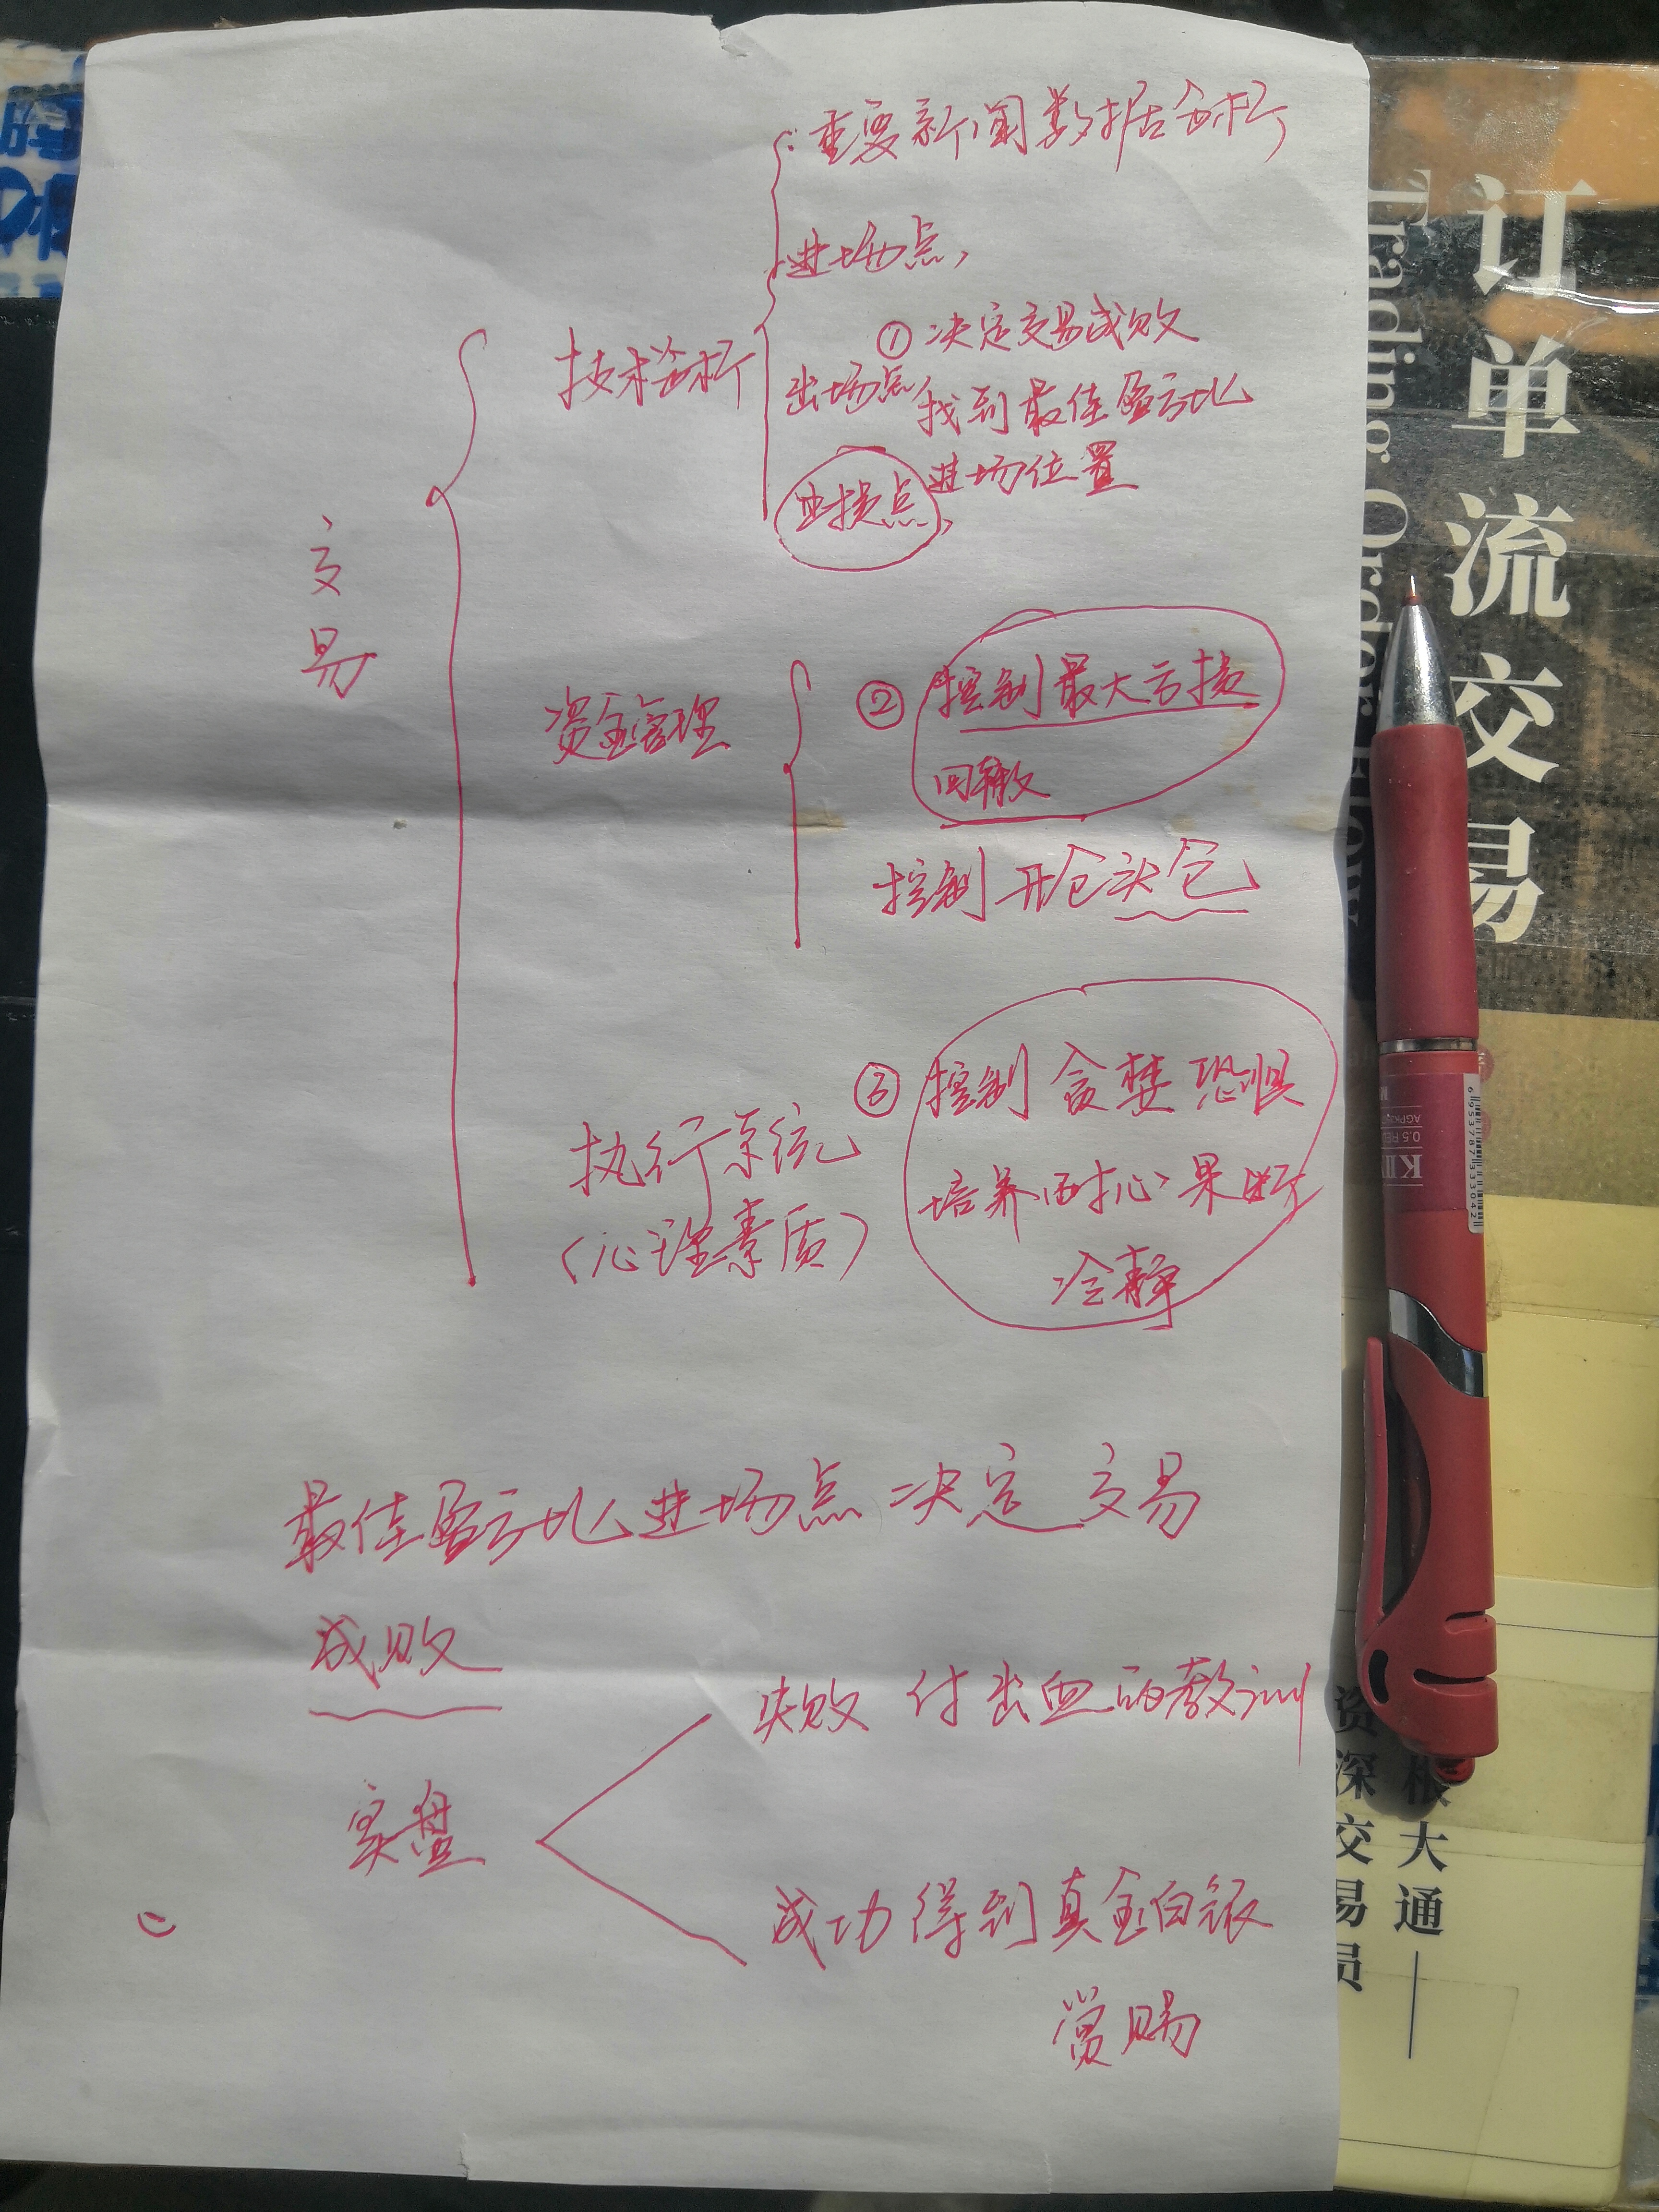 重要新闻数据分析
进场点,
技术分析
① 决定交易成败
出场点 找到最佳盈亏比
进场位置
止损点,
交易
资金管理
② 控制最大亏损
回撤
控制开仓头仓
执行系统
(心理素质)
③ 控制贪婪恐惧
培养耐心果断
冷静
最佳盈亏比进场点决定交易
成败
实盘
失败 付出血的教训
成功得到真金白银
赏赐
订单流交易
Trading Order Flow
根大通——
资深交易员
AGPK
0.5
6953787333042